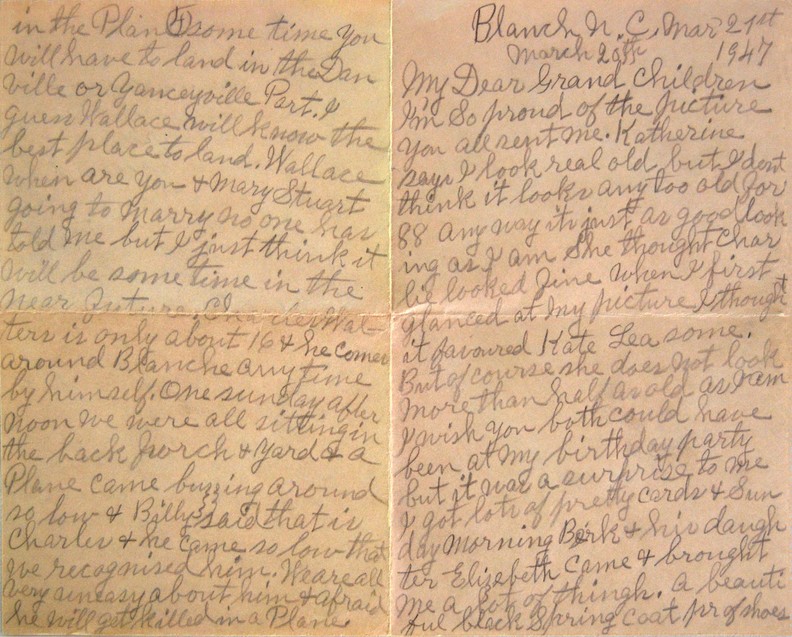 Blanch N. C. Mar 21st
March 20th 1947
My Dear Grand Children
I'm So proud of the Picture
you all sent me. Katherine
says I look real old, but I dont
think it looks any too old for
88 any way its just as good look
ing as I am She thought Char
lie looked fine When I first
glanced at My picture I thought
it favoured Kate Lea some.
But of course she does not look
more than half as old as I am
I wish you both could have
been at My birthday party
but it was a surprise to me
I got lots of pretty cards & Sun
day Morning & his daugh
ter Elizabeth Came & brought
Me a lot of things. a beauti
ful black Spring Coat pr of shoes
in the Plane some time you
will have to land in the Dan
ville or Yanceyville Port. I
guess Wallace will know the
best place to land. Wallace
when are you & Mary Stuart
going to Marry no one has
told me but I just think it
will be some time in the
near future. Charles Wal-
ters is only about 16 & he comes
around Blanche any time
by himself. One sunday after
noon we were all sitting in
the back Porch & Yard & a
Plane Came buzzing around
so low & Billy said that is
Charles & he came so low that
we recognised him. We are all
very uneasy about him & afraid
he will get killed in a Plane.